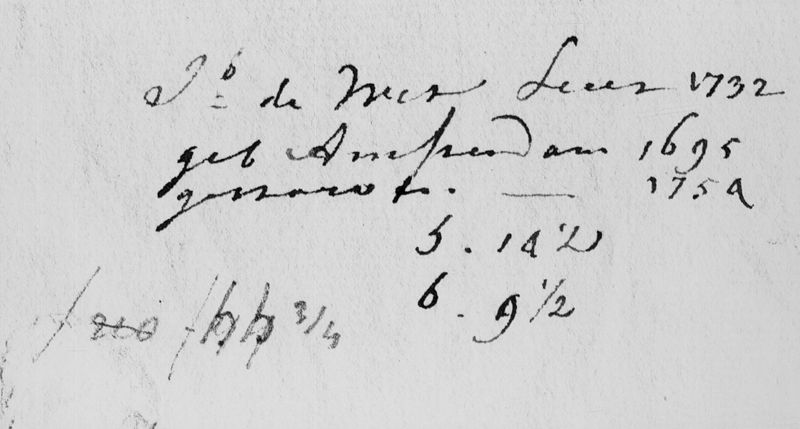 Jb de Wit fecit 1732
geb Amsterdam 1695
gestorven. — 1754
5. 14 ½
6. 9 ½
3/4